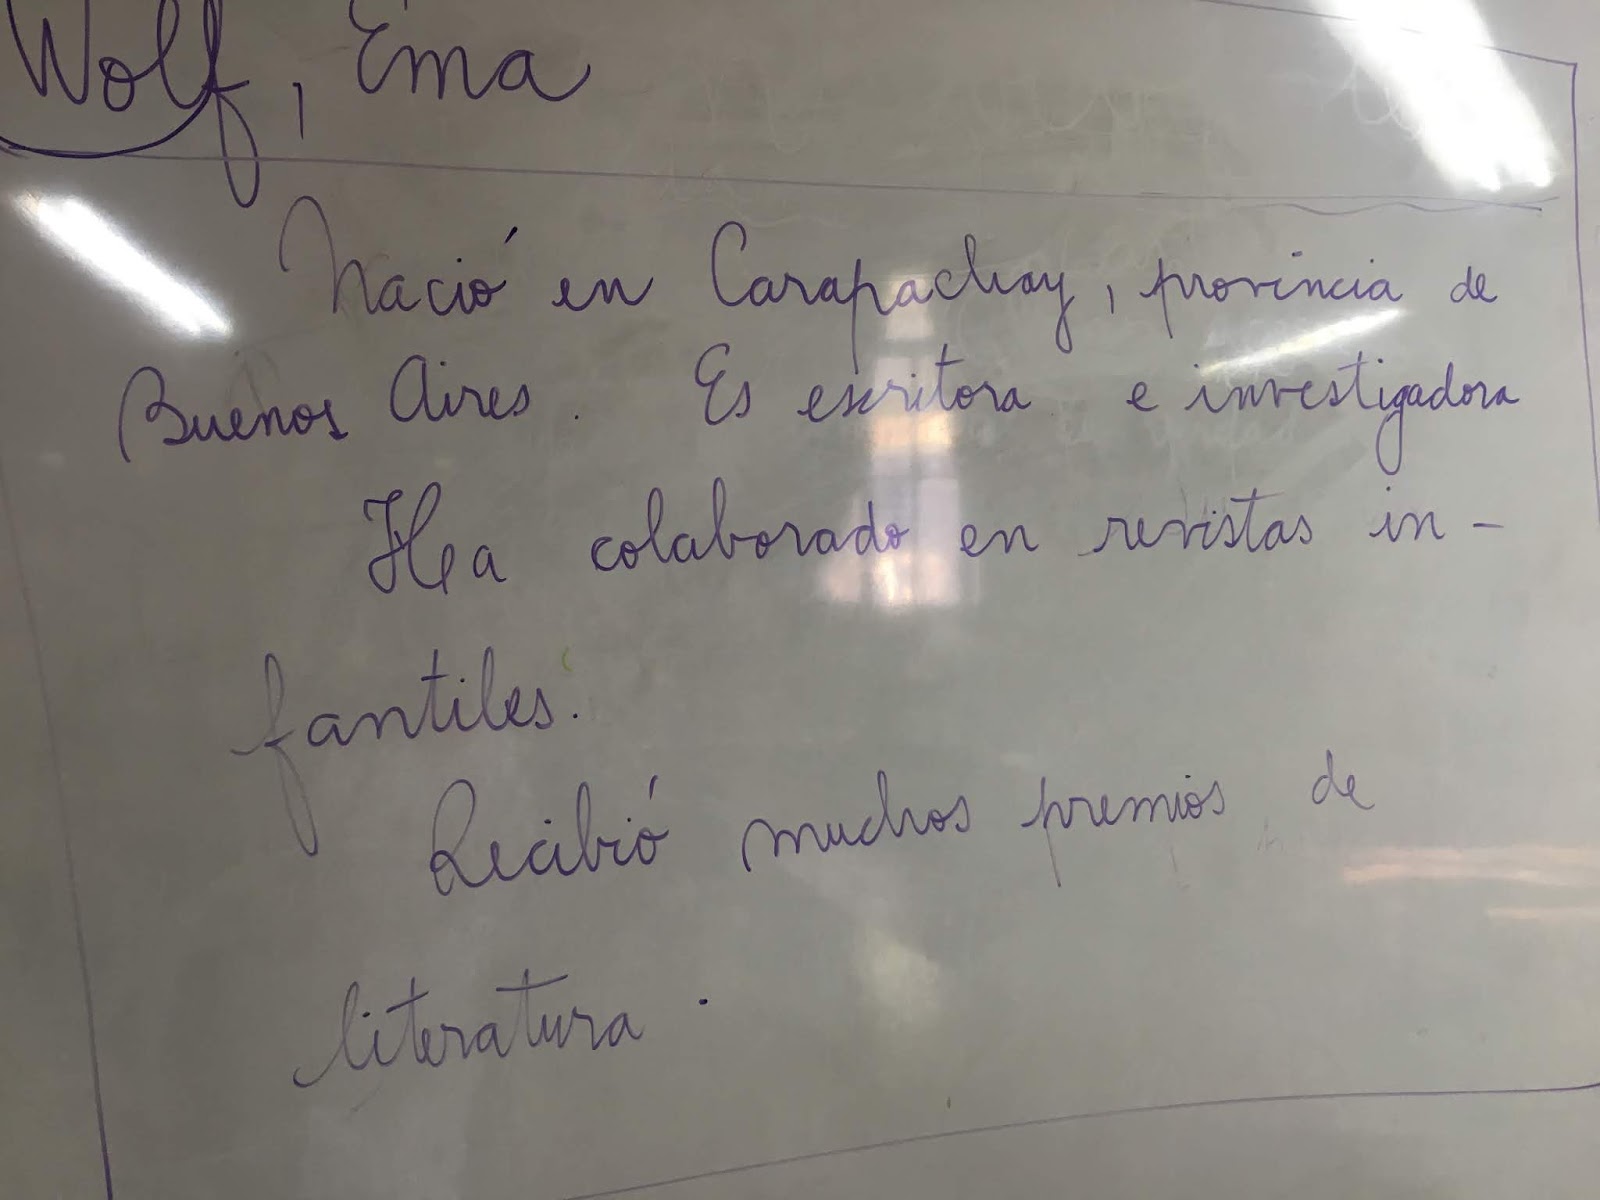 Wolf, Ema
Nació en Carapachay, provincia de
Buenos Aires. Es escritora e investigadora
Ha colaborado en revistas in-
fantiles.
Recibió muchos premios de
literatura.